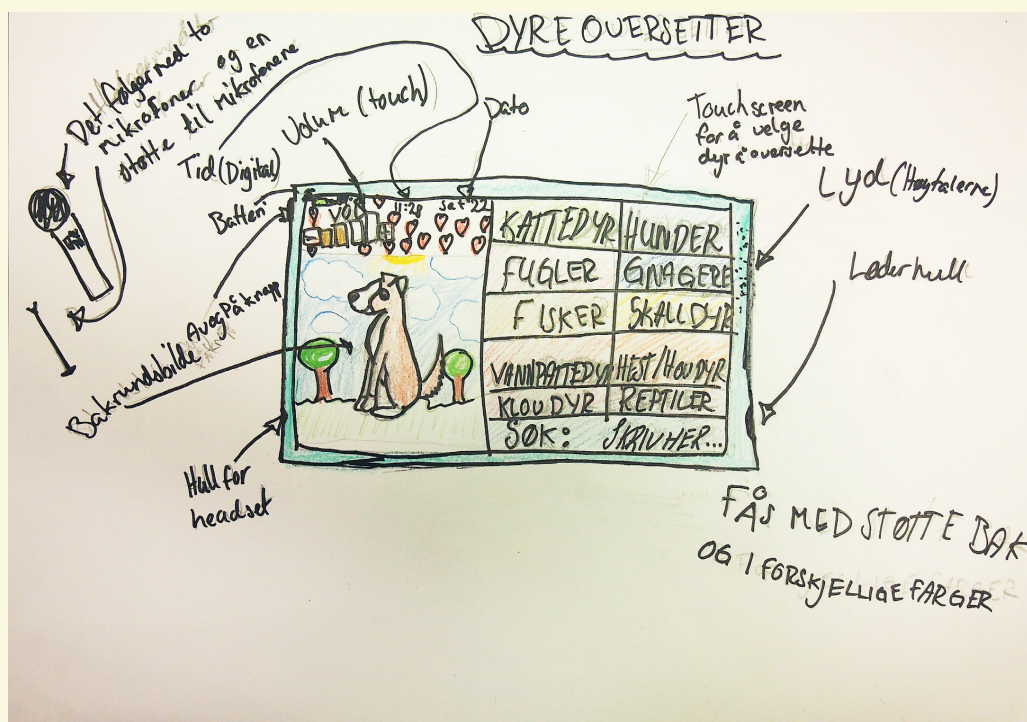 DYRE OVERSETTER
Det følger med to
mikrofoner og en
støtte til mikrofonene
Tid (Digital)
Volume (touch)
Dato
Touchscreen
for å velge
dyr å oversette
Lyd (Høytalerne)
Laderhull
Batteri
Av og På knapp
Bakrundsbilde
Hull for
headset
VOL
11:28
sat 22
KATTEDYR HUNDER
FUGLER GNAGERE
FISKER SKALLDYR
VANNPATTEDYR HEST/HOVDYR
KLOVDYR REPTILER
SØK: SKRIV HER...
FÅS MED STØTTE BAK
OG I FORSKJELLIGE FARGER